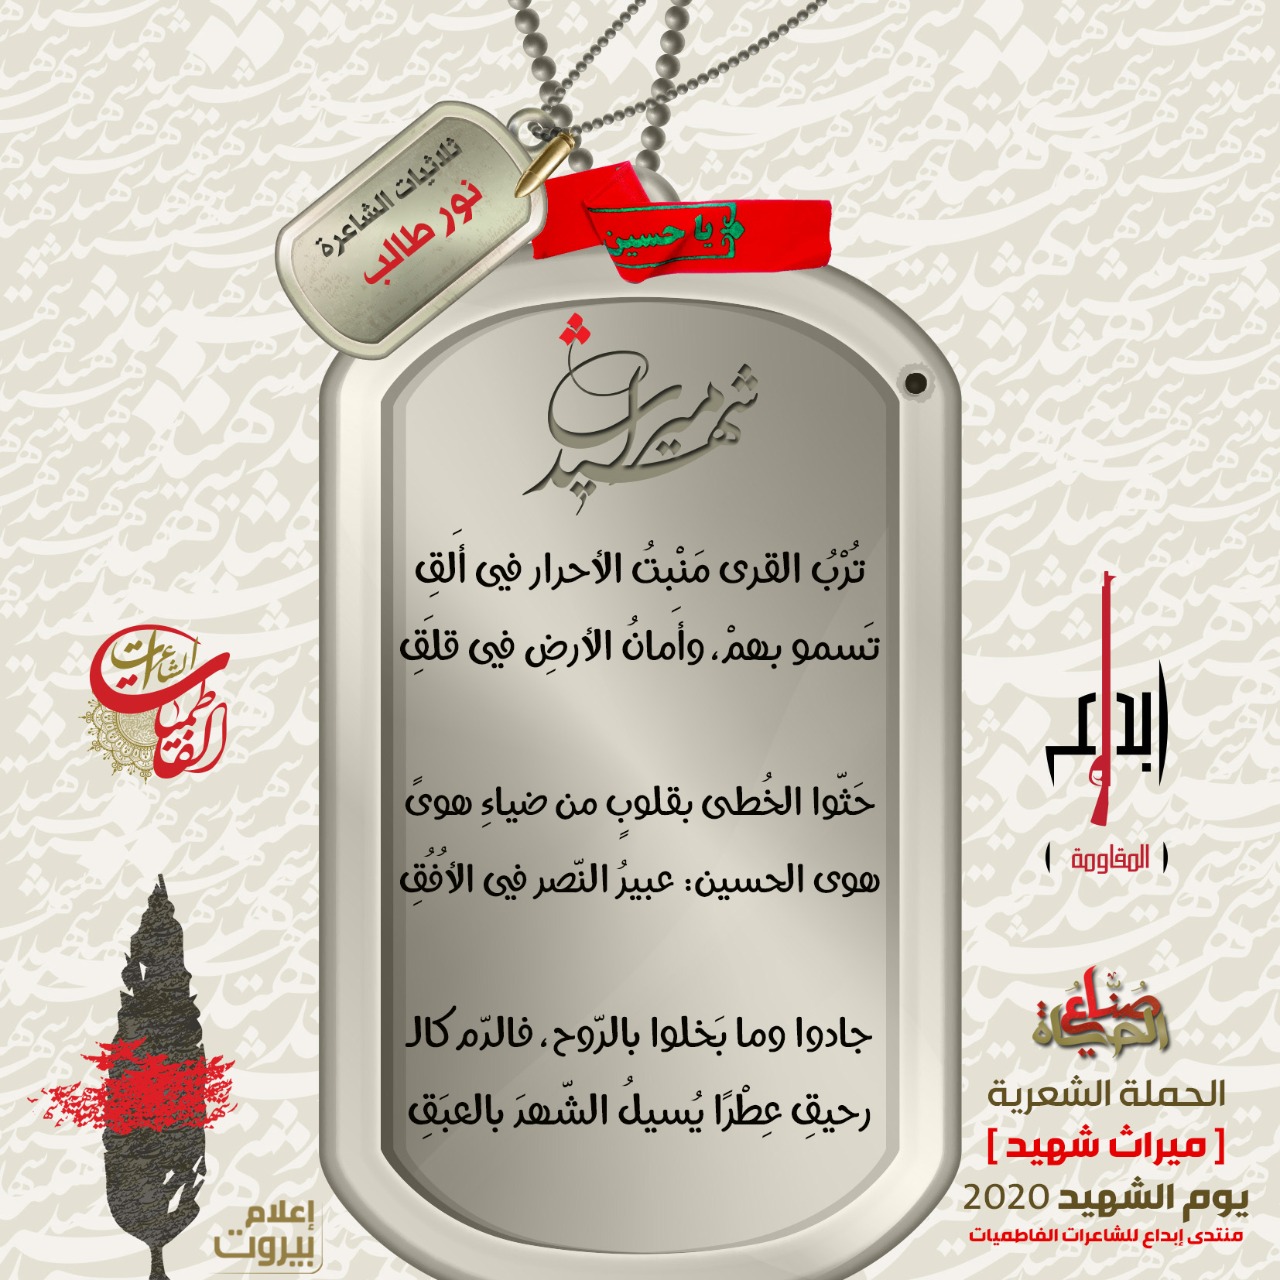 ثلاثيات الشاعرة
نور طالب
يا حسين
ميراث
شهيد
تُرْبُ القرى مَنْبتُ الأحرار في أَلَقِ
تَسمو بهمْ، وأَمانُ الأرضِ في قلَقِ
حَثّوا الخُطى بقلوبٍ من ضياءِ هوىً
هوى الحسين: عبيرُ النّصر في الأُفُقِ
جادوا وما بَخلوا بالرّوح، فالدّم كالـ
رحيقِ عِطْرًا يُسيلُ الشّهدَ بالعبَقِ
الشاعرات
الفاطميات
إبداع
( المقاومة )
صُنّاعُ
الحياة
الحملة الشعرية
[ ميراث شهيد ]
يوم الشهيد 2020
منتدى إبداع للشاعرات الفاطميات
إعلام
بيروت